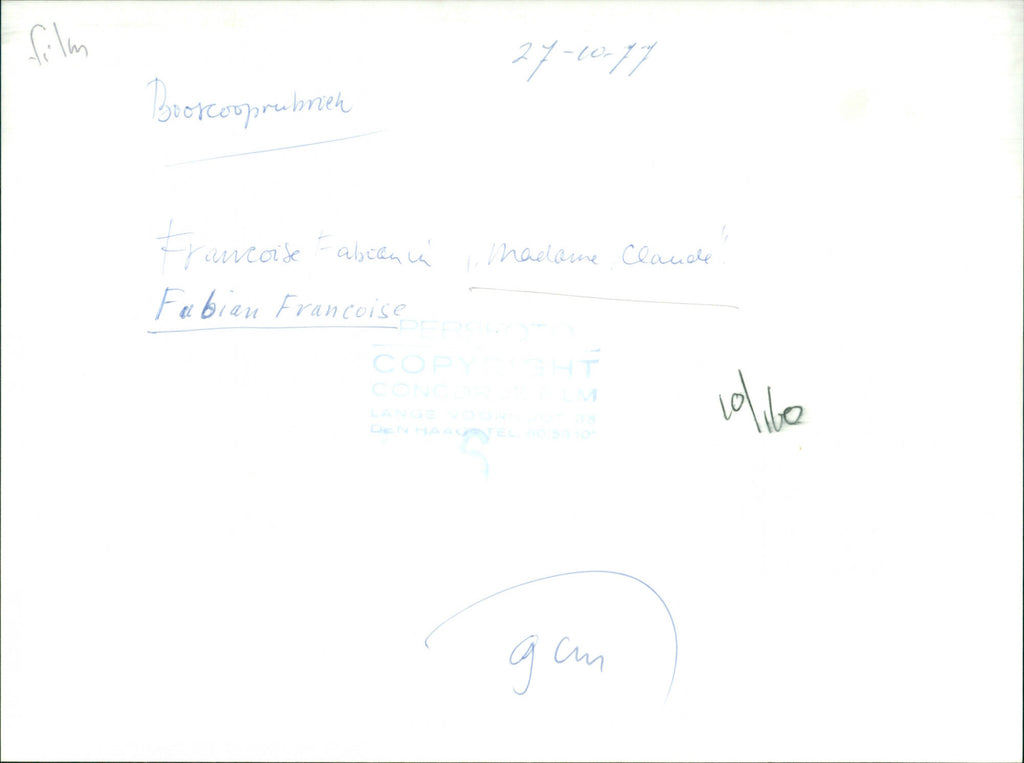 film
27-10-77
Bioscooprubriek
Francoise Fabian in „Madame Claude"
Fabian Francoise
PERSFOTO
COPYRIGHT
CONCORDE FILM
LANGE VOORHOUT
DEN HAAG TEL
10/160
9 cm